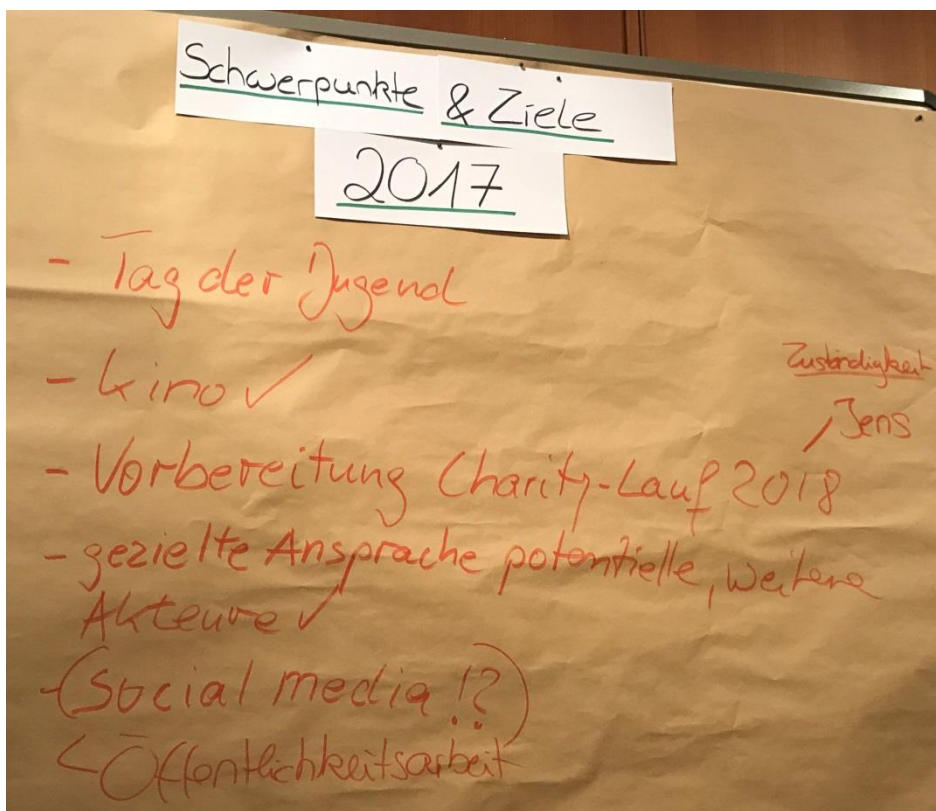 Schwerpunkte & Ziele
2017
- Tag der Jugend
- Kino ✓
Zuständigkeit
Jens
- Vorbereitung Charity-Lauf 2018
- gezielte Ansprache potentielle, weitere
Akteure ✓
- (Social media !?)
Öffentlichkeitsarbeit